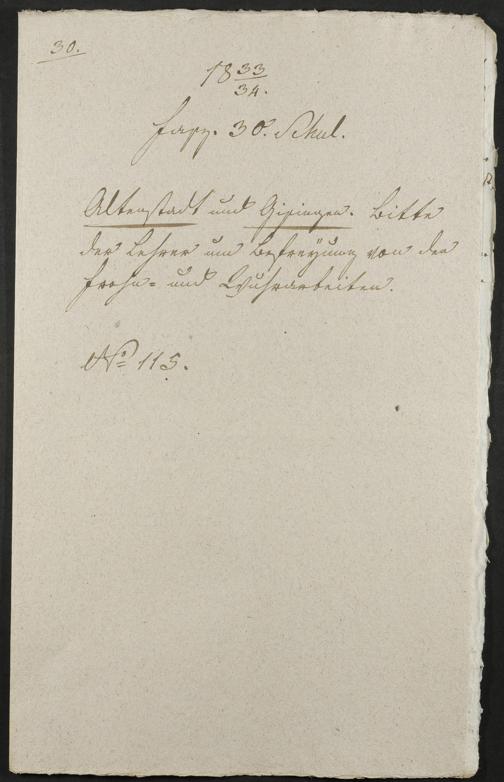 30.
18 33/34.
Fasz. 30. Schul.
Altenstadt und Gisingen. Bitte
der Lehrer um Befreyung von den
Frohn- und Wuhrarbeiten.
No 115.